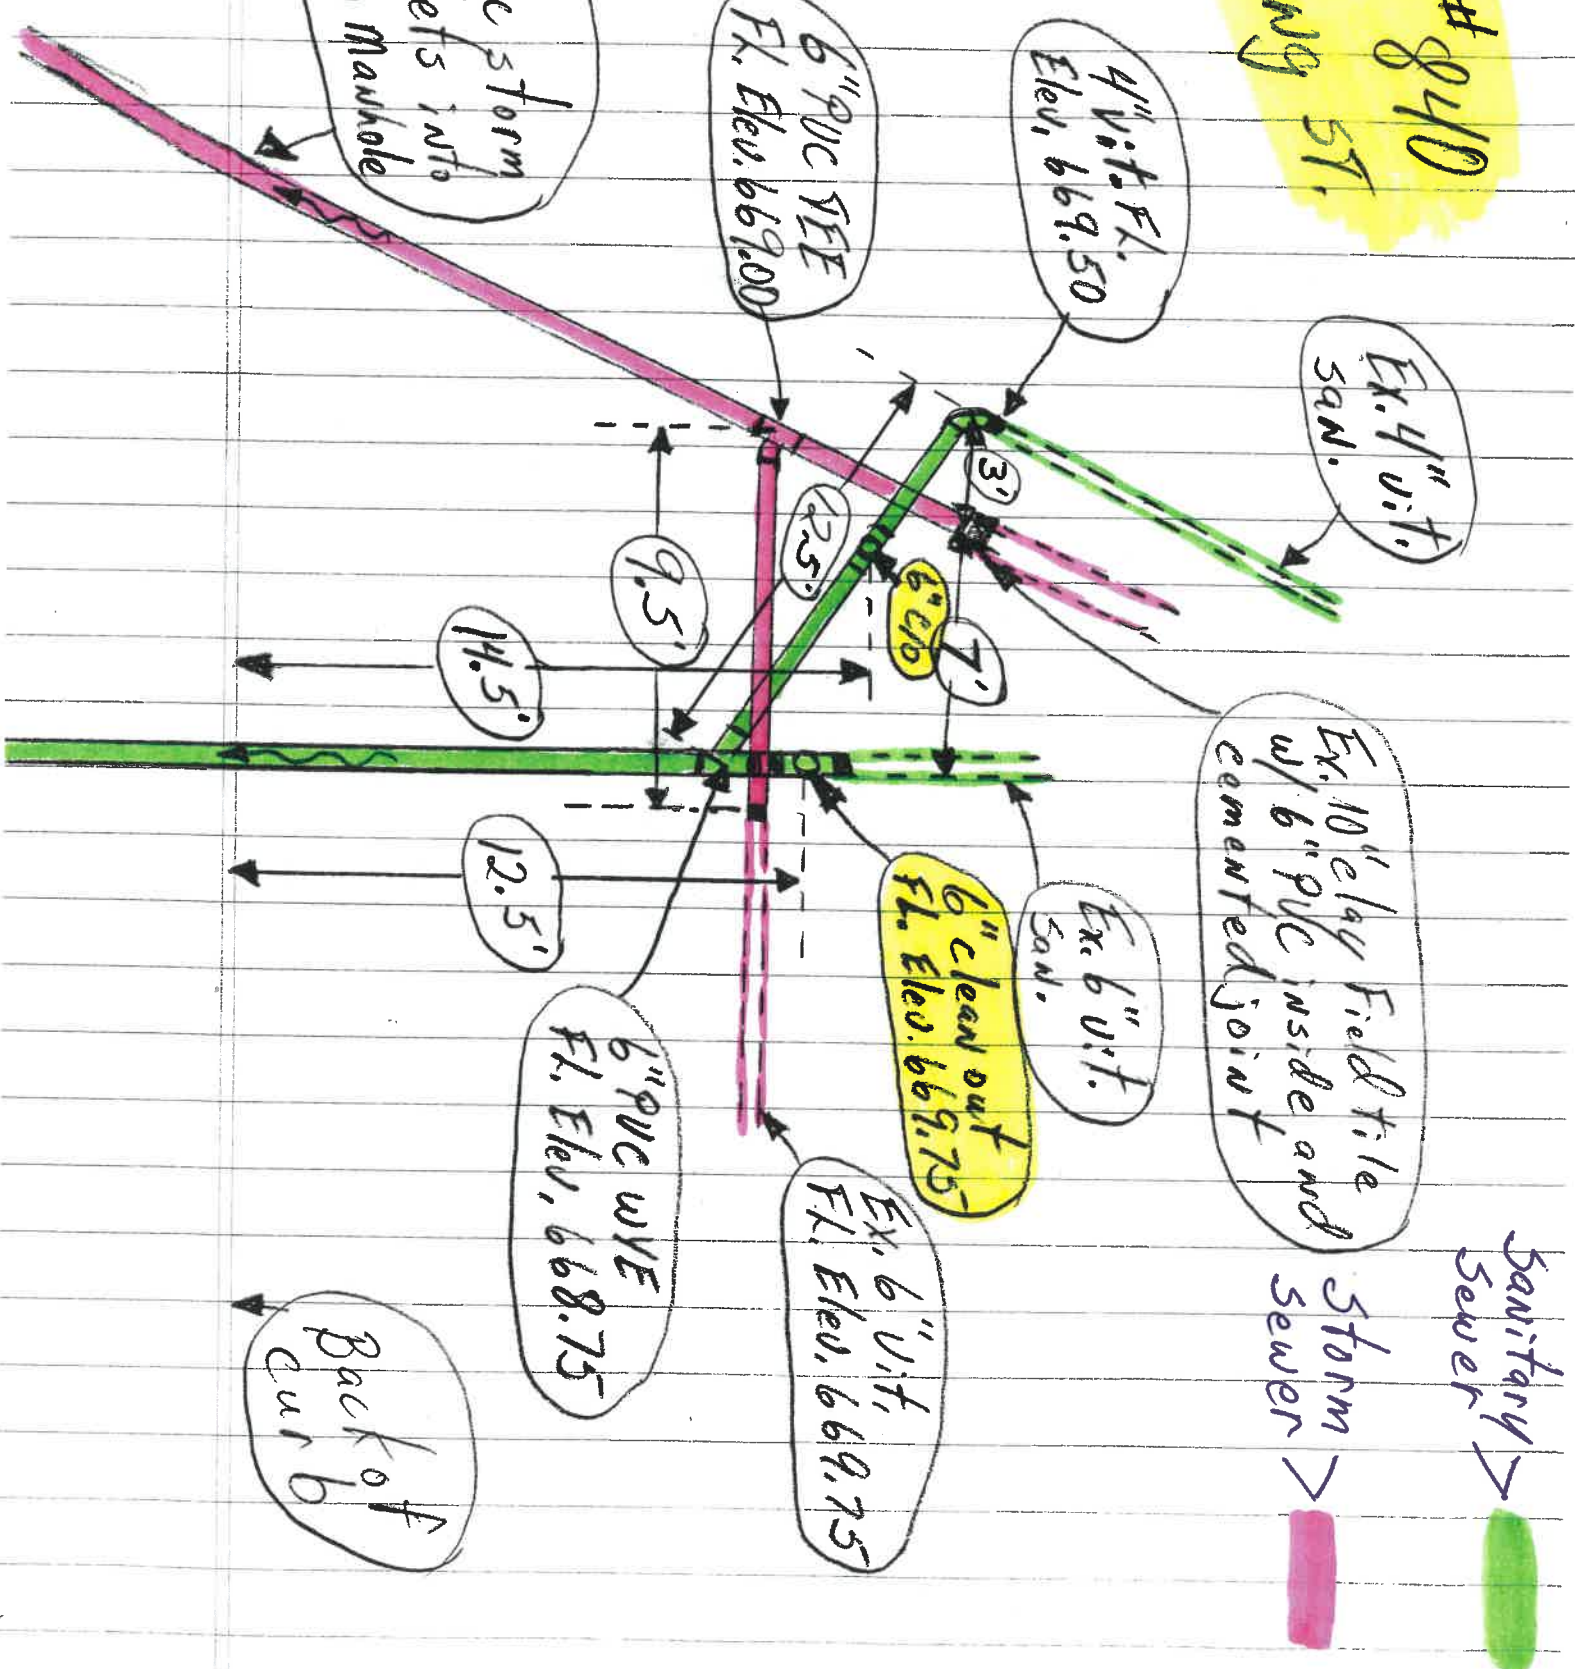 # 840
ng ST.
Sanitary >
Sewer
Storm >
Sewer
Ex. 4" vit.
SAN.
4" Vit. FL.
Elev. 669.50
6" PVC TEE
FL. Elev. 669.00
c storm
ets into
Manhole
Ex. 10" clay Field tile
w/ 6" PVC inside and
cemented joint
Ex. 6" vit.
SAN.
6" clean out
FL. Elev. 669.75
Ex. 6" Vit.
FL. Elev. 669.75
6" PVC WYE
FL. Elev. 668.75
Back of
curb
3'
7'
6" c/o
12.5'
9.5'
14.5'
12.5'